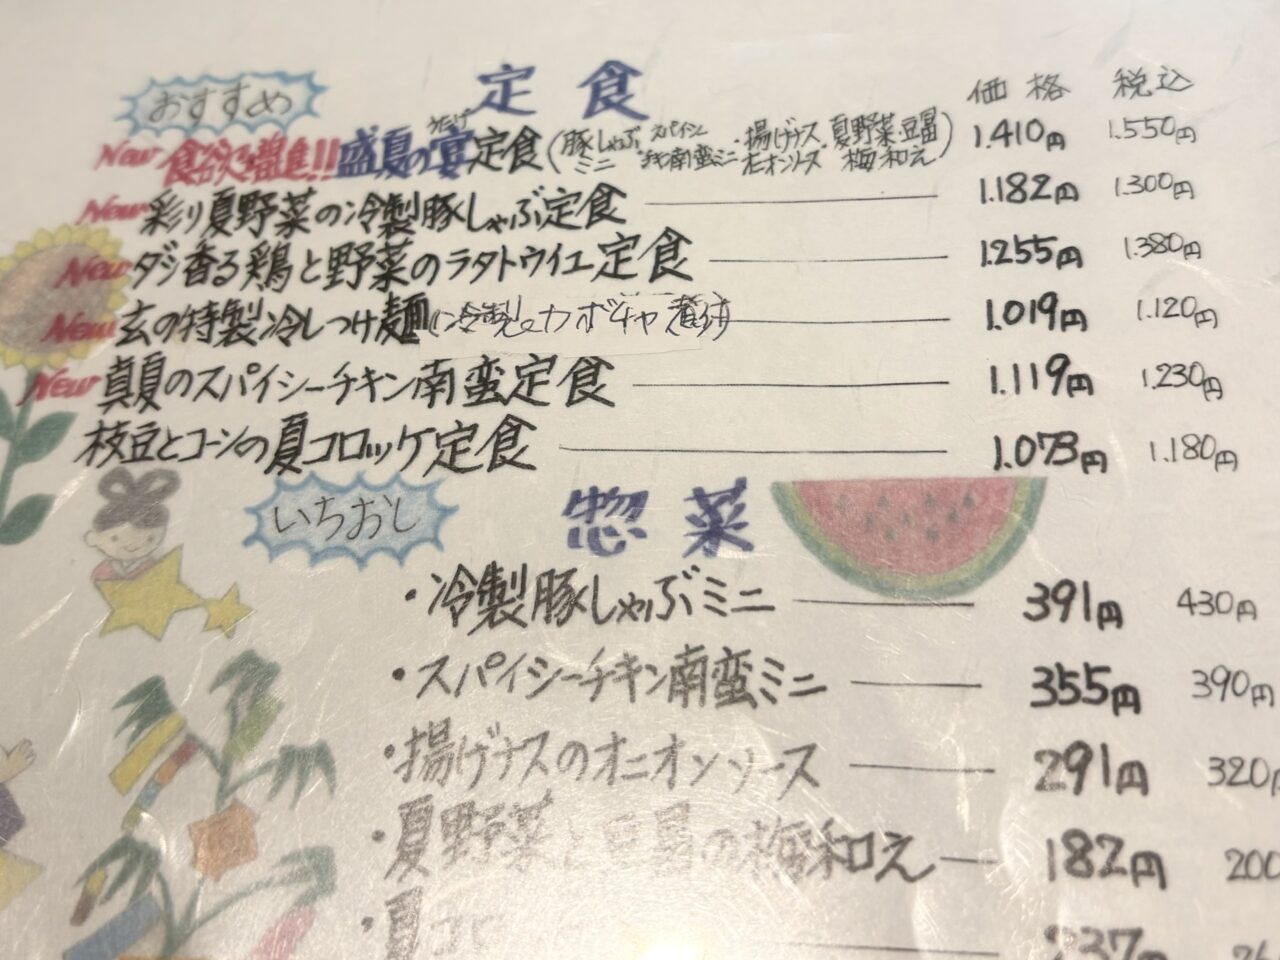 おすすめ 定食 価格 税込
New 食欲増進!!盛夏の宴定食(豚しゃぶミニ・スパイシーチキン南蛮ミニ・揚げナスオニオンソース・夏野菜・豆富梅和え) 1.410円 1.550円
New 彩り夏野菜の冷製豚しゃぶ定食 1.182円 1.300円
New ダシ香る鶏と野菜のラタトウイユ定食 1.255円 1.380円
New 玄の特製冷しつけ麺(冷製カボチャ煮付) 1.019円 1.120円
New 真夏のスパイシーチキン南蛮定食 1.119円 1.230円
枝豆とコーンの夏コロッケ定食 1.073円 1.180円
いちおし 惣菜
・冷製豚しゃぶミニ 391円 430円
・スパイシーチキン南蛮ミニ 355円 390円
・揚げナスのオニオンソース 291円 320円
・夏野菜と豆富の梅和え 182円 200
・夏コロ 237円